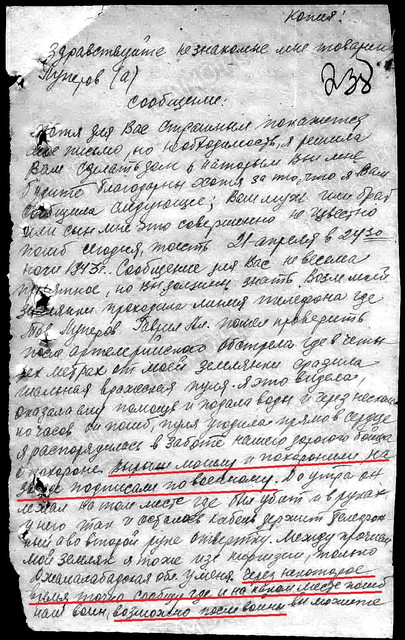 Копия!
Здравствуйте незнакомые мне товарищ
Луперов (а)
238
сообщение.
Хотя для Вас страшным покажется
мое письмо, но необходимость, я решила
Вам сделать
благодарны хотя за то, что я Вам
сообщила следующие; Ваш муж или брат
или сын мне это совершенно не известно
погиб сегодня, тоесть 21 апреля в 24 30
ночи 1943г. Сообщение для Вас не весьма
приятное, но вы должны знать Возле моей
землянки проходила линия телефона где
тов Луперов Гаврил Ал. пошел проверить
после артелерийского обстрела где в четы
рех метрах от моей землянки сразила
шальная вражеская пуля. Я это видела,
оказала ему помощь и подала воды и через несколь
ко часов он погиб, пуля угодила прямо в сердце
я распорядилась в заботе нашего дорогого бойца
о похороне. Вырыли могилу и похоронили на
подписали по военному. До утра он
лежал на том месте где был убит и в руках
у него так и остался кабель держит телефон
ный а во второй руке отвертку. Между прочим
мой земляк я тоже из киргизии, только
Джалалабадская обл. у меня. Через некоторое
время точно сообщу где и на каком месте погиб
наш воин, возможно после войны вы можете